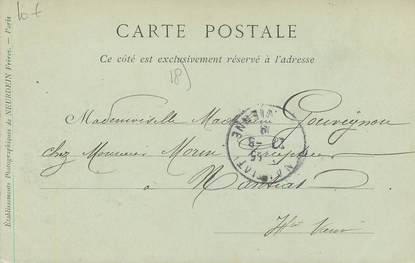 10 F
CARTE POSTALE
Ce côté est exclusivement réservé à l'adresse
18)
Mademoiselle Gouveignou
chez Monsieur Morin
à Nantiat
Hte Vienne
Etablissements Photographiques de NEURDEIN Frères. — Paris